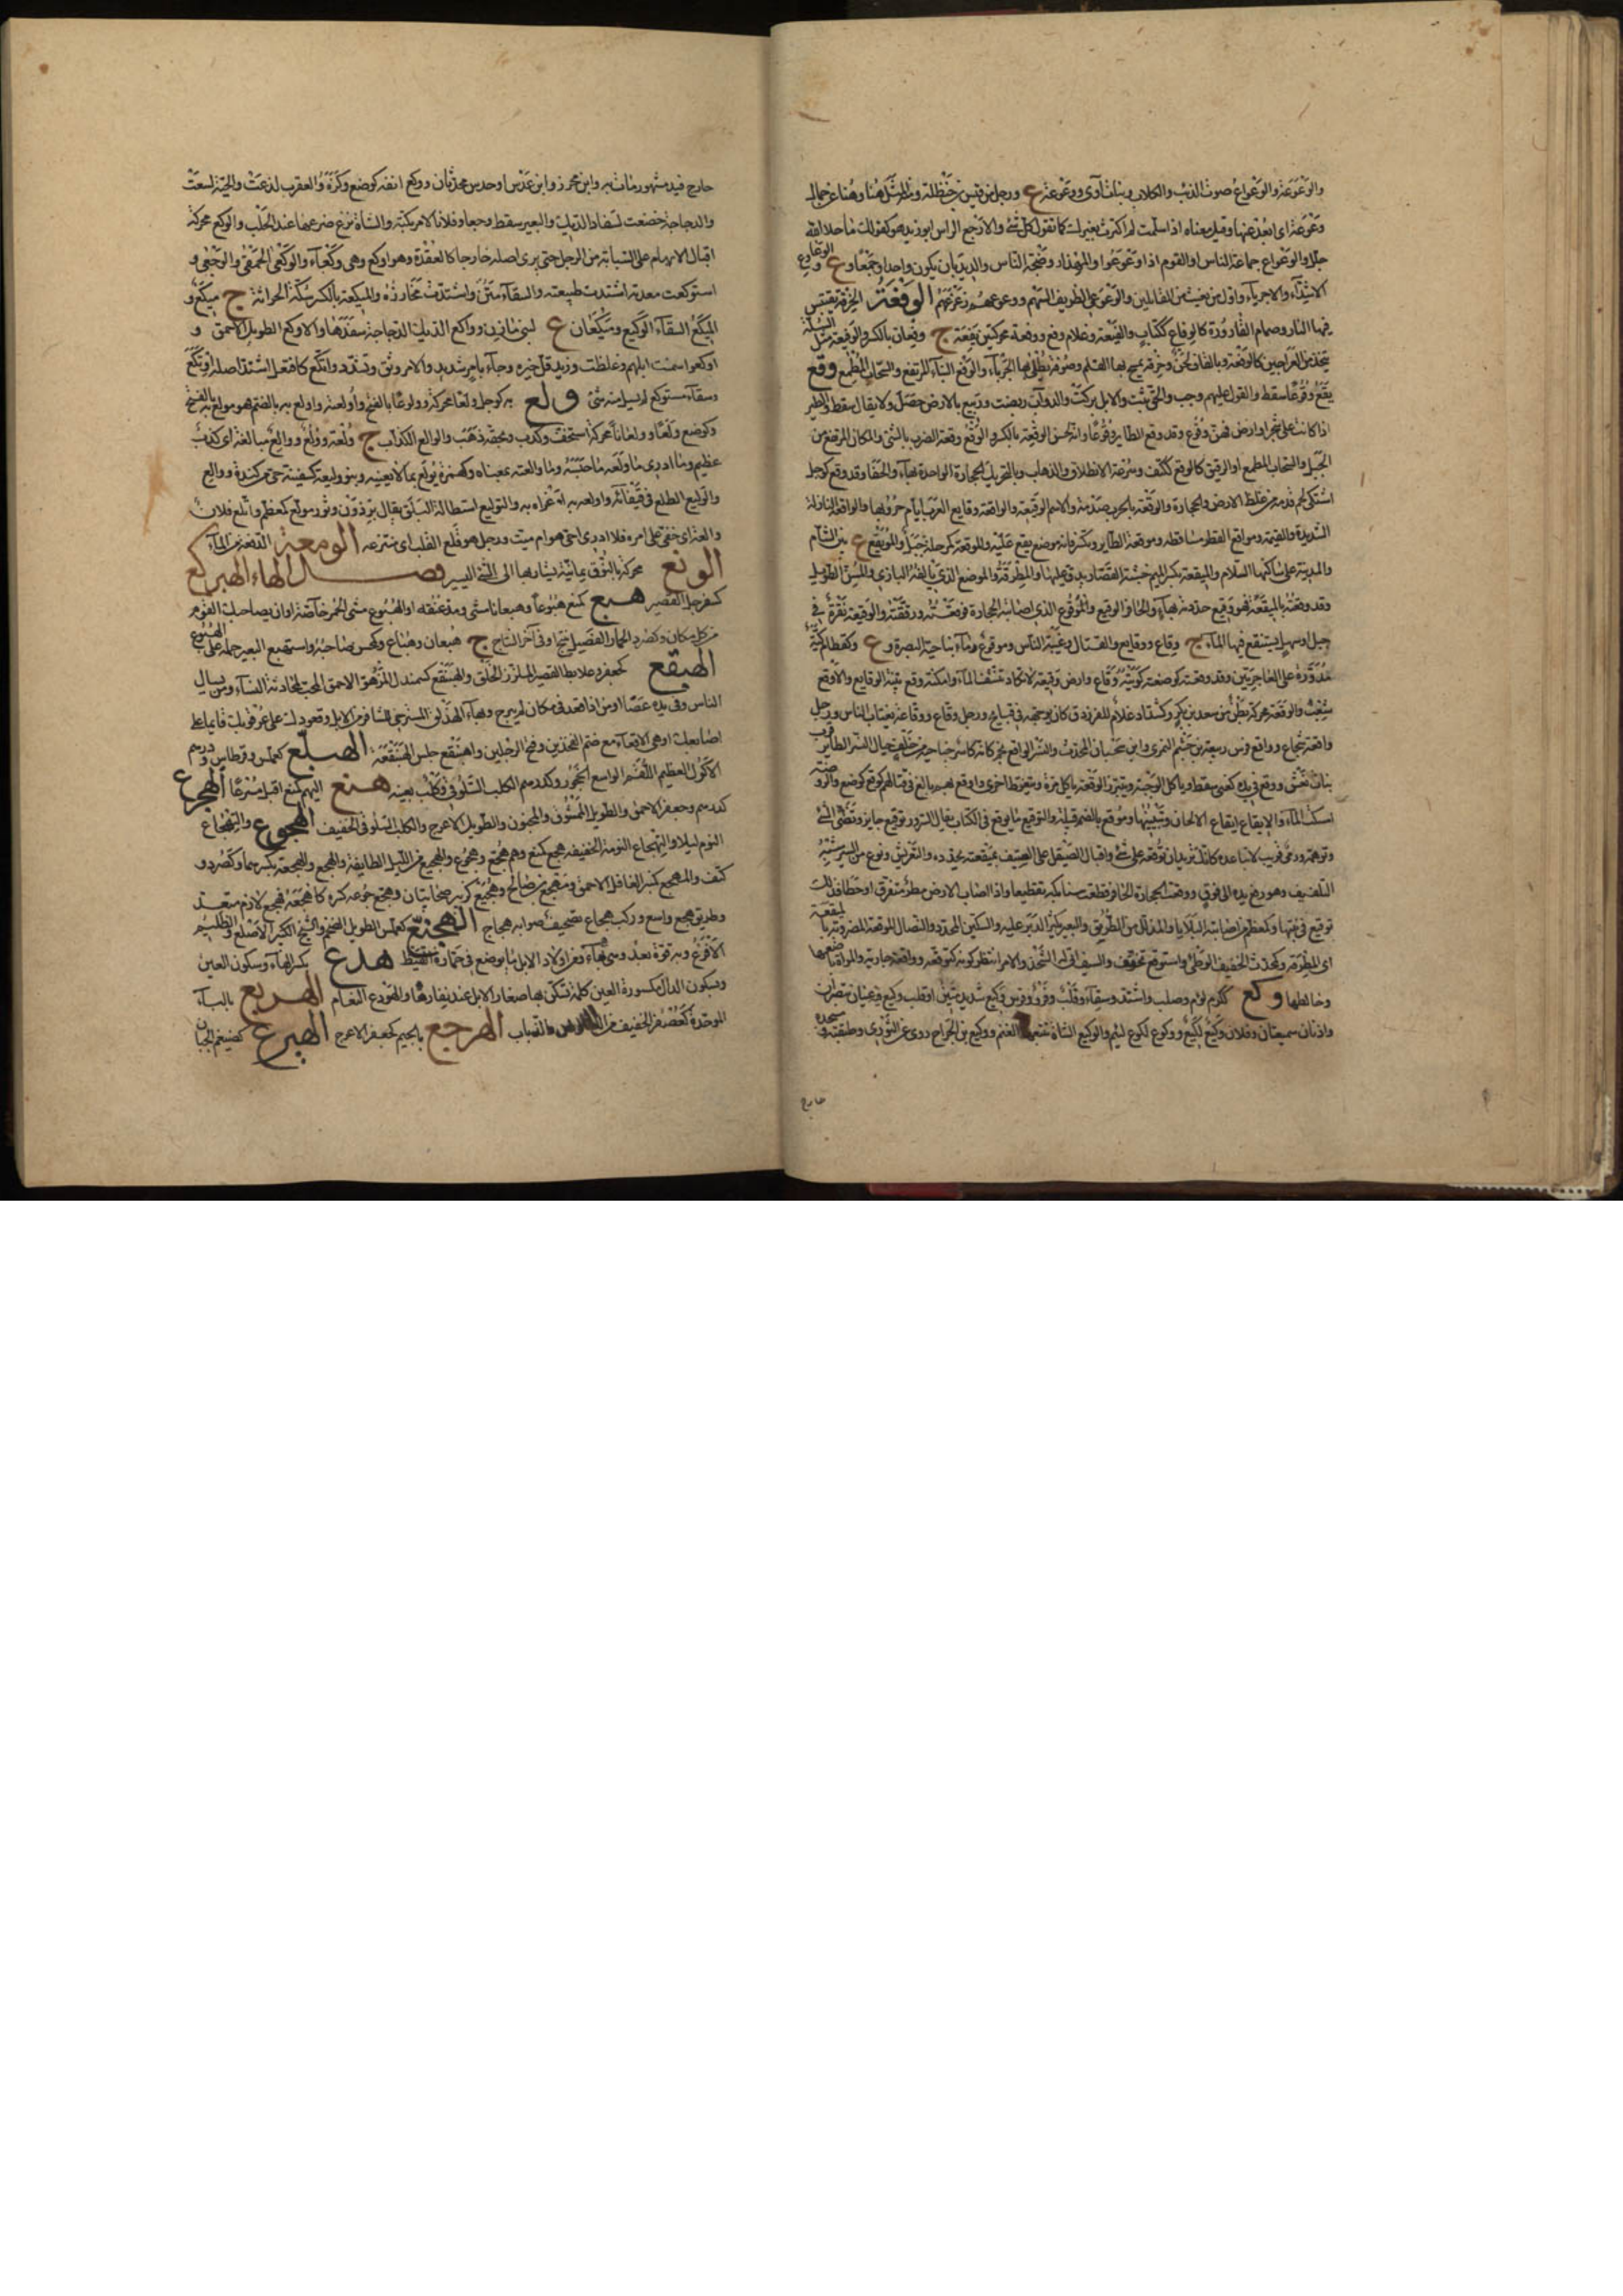 والوَعْوَعَة والوَعْواع صوت الذئب والكلاب وبنات آوى ووعوعة ع ورجل من قيس بن حنظلة ومنه المثل هنا وهنا عن جمال
وعوعة اى ابعد عنها وقيل معناه اذا سلمت لم اكترث بغيرك كما تقول كل شئ ولا وجع الراس ابو زيد هو كقولك ما خلا الله
جلل والوعواع جماعة الناس او القوم اذا وعوعوا والمهذار وضجة الناس والديدبان يكون واحدا وجمعا وع
فيها النار وصمام القارورة كالوفاع ككتاب والفيعة وغلام وفع ووفعة محركتين يفعة ج وفعان بالكسر والوفيعة مثل السلة
يتخذ من العراجين
يقع وقوعا سقط والقول عليهم وجب والحق ثبت والابل بركت والدواب ربضت وربيع بالارض حصل ولا يقال سقط والطير
اذا كانت على شجر او ارض فهن وقوع وقد وقع الطاير وقوعا وانه لحسن الوقعة بالكسر والوقع وقعة الضرب بالشئ والمكان المرتفع من
الجبل والسحاب المطمع او الرقيق كالوقع ككتف وسرعة الانطلاق والذهاب وبالتحريك الحجارة الواحدة بهاء والحفا وقد وقع كوجل
اشتكى لحم قدمه من غلظ الارض والحجارة والوقعة بالحرب صدمة والاسم الوقيعة والواقعة ووقايع العرب ايام حروبها والواقعة النازلة
الشديدة والقيمة ومواقع القطر مساقطه وموقعة الطاير وتكسر قافه موضع يقع عليه والموقعة كمرحلة جبل والموقع ع بين الشام
والمدينة على ساكنها السلام والميقعة بكسر الميم خشبة القصار يدق عليها والمطرقة والموضع الذى يالفه البازى والمسن الطويل
وقد وقعته بالميقعة فهو وقيع حددته بها والحافر الوقيع والموقوع الذى اصابته الحجارة فوقعته ورققته والوقيعة نقرة فى
جبل او سهل يستنقع فيها الماء ج وقاع ووقايع والقتال وغيبة الناس وموقوع وماء بناحية البصرة وع وكقطام كية
مدورة على الجاعرتين وقد وقعته كوضعته كويته وقاع وارض وقيعة لا تكاد تنشف الماء وامكنة وقع بينة الوقايع والاوقع
شعب والوقعة محركة بطن من سعد بن بكر وكشداد غلام للفرزدق كان يوجهه فى قبايح ورجل وقاع ووقاعة يغتاب الناس ورجل
واقعة شجاع وواقع فرس ربيعة بن جشم النمرى وابن سحبان المحدث والنسر الواقع نجم كانه كاسر جناحيه من خلفه حيال النسر الطائر قرب
بنات نعش ووقع فى يده كعنى سقط وياكل الوجبة ويتبرز الوقعة ياكل مرة ويتغوط اخرى واوقع بهم بالغ فى قتالهم كوقع كوضع والروضة
امسكت الماء والايقاع ايقاع الالحان وتبيينها وموقع بالضم قبيلة والتوقيع ما يوقع فى الكتاب يقال السرور توقيع جايز وتظنى الشئ
وتوهمه ورمى قريب لا تباعده كانك تريد ان توقعه على شئ واقبال الصيقل على السيف بميقعته يحدده والتعريس ونوع من السير شبه
التلقيف وهو رفعه يده الى فوق ووقعت الحجارة الحافر قطعت سنابكه تقطيعا واذا اصاب الارض مطر متفرق او خطا فذلك
توقيع فى نبتها وكمعظم من اصابته البلايا والمذلل من الطريق والبعير كثير الدبر عليه والسكين المحدد والنصال الموقعة المضروبة بالميقعة
اى المطرقة وكمحدث الخفيف الوطئ واستوقع تخوف والسيف انى له الشحذ والامر انتظر كونه كتوقعه وواقعه حاربه والمراة باضعها
وخالطها وكع ككرم لؤم وصلب واشتد وسقاء وقلب وفرو وفرس وكيع شديد متين او قلب وكيع فيه عينان تبصران
واذنان سميعتان وفلان وكيع لكيع ووكوع لكوع لئيم والوكيع الشاة تتبعها الغنم ووكيع بن الجراح روى عن الثورى وطبقته ومسجده
خارج
خارج فيد مشهور مات به وابن محرز وابن عدس او حدس محدثان ووكع انفه كوضع وكزه والعقرب لدغت والحية لسعت
والدجاجة خضعت لسفاد الديك والبعير سقط وجعا وفلانا الامر بكته والشاة نهز ضرعها عند الحلب والوكع محركة
اقبال الابهام على السبابة من الرجل حتى يرى اصله خارجا كالعقدة وهو اوكع وهى وكعاء والوكعى الحمقى والوجعى و
استوكعت معدته اشتدت طبيعته والسقاء متن واشتدت مخارزه والميكعة بالكسر سكة الحراثة ج ميكع و
الميكع السقاء الوكيع وميكعان ع لبنى مازن وواكع الديك الدجاجة سفدها والاوكع الطويل الاحمق و
اوكعوا سمنت ابلهم وغلظت وزيد قل خيره وجاء بامر شديد والامر وثق وتشدد واتكع كافتعل اشتد اصله اوتكع
وسقاء مستوكع لم يسل منه شئ ولع به كوجل ولعا محركة وولوعا بالفتح واولعته واولع به بالضم فهو مولع به بالفتح
وكوضع ولعا وولعانا محركة استخف وكذب وبحقه ذهب والوالع الكذاب ج ولعة وولع ووالع مبالغة اى كذب
عظيم وما ادرى ما ولعه ما حبسه وما والعته بمعناه وكهمزة يولع بما لا يعنيه وبنو وليعة كسفينة حى من كندة ووالع
والوليع الطلع فى قيقائه واولعه به اغراه به والتوليع استطالة البلق يقال برذون وثور مولع كمعظم واتلع فلان
والعة اى خفى على امره فلا ادرى احى هو ام ميت ورجل هو تلع القلب اى منتزعه الومعة الدفعة من الماء
الونع محركة بالنون يمانية يشار بها الى الشئ اليسير فصل الهاء الهبركع
كسفرجل القصير هبع كمنع هبوعا وهبعانا مشى ومد عنقه او الهبوع مشى الحمر خاصة او ان يفاجئك القوم
من كل مكان وكصرد الحمار والفصيل ينتج او فى آخر النتاج ج هبعان وهباع وكمحسن صاحبه واستهبع البعير حمله على الهبوع
الهبقع كجعفر وعلابط القصير الملزز الخلق والهبنقع كسمندل المزهو الاحمق المحب لمحادثة النساء ومن يسال
الناس وفى يده عصا او من اذا قعد فى مكان لم يبرح
اصابعك او هى الاقعاء مع ضم الفخذين وفتح الرجلين واهبنقع جلس الهبنقعة الهبلع كعملس وقرطاس ودرهم
الاكول العظيم اللقم الواسع الحنجور وكدرهم الكلب السلوقى وكلب بعينه هتع اليهم كمنع اقبل مسرعا الهجرع
كدرهم وجعفر الاحمق والطويل الممشوق والمجنون والطويل الاعرج والكلب السلوقى الخفيف الهجوع والتهجاع
النوم ليلا او التهجاع النومة الخفيفة هجع كمنع وهم هجع وهجوع والهجيع من الليل الطايفة والهجع والهجعة بكسرهما وكصرد و
كتف والمهجع كمنبر الغافل الاحمق ومهجع بن صالح وهجيع كزبير صحابيتان وهجع جوعه كسره كاهجعه فهجع لازم متعد
وطريق هجع واسع وركب هجاع تصحيف صوابه هجاج الهجنع كعملس الطويل الضخم والشيخ الكبير الاصلع والظليم
الاقرع وبه قوة بعد وهى بهاء ومن اولاد الابل ما يوضع فى حمارة القيظ هدع بكسر الهاء وسكون العين
وبسكون الدال مكسورة العين كلمة تسكن بها صغار الابل عند نفارها والهودع النعام الهربع بالباء
الموحدة كعصفر الخفيف من الذئاب الهرجع بالجيم كجعفر الاعرج الهيرع كضيغم الجبان